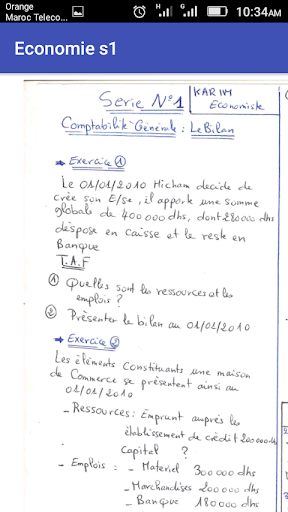 Orange
Maroc Teleco...
10:34AM
Economie s1
Serie N°1
KARIM
Economiste
Comptabilité Générale : Le Bilan
Exercice ①
Le 01/01/2010 Hicham decide de
crée son E/se, il apporte une somme
globale de 400 000 dhs, dont 280 000 dhs
déspose en caisse et le reste en
Banque
T.A.F
① Quelles sont les ressources et les
emplois ?
② Présenter le bilan au 01/01/2010
Exercice ②
Les éléments constituants une maison
de Commerce se présentent ainsi au
01/01/2010
- Ressources : Emprunt auprès les
établissement de crédit 200 000 dhs
Capital ?
- Emplois : - Materiel 300 000 dhs
- Marchandises 200 000 dhs
- Banque 180 000 dhs